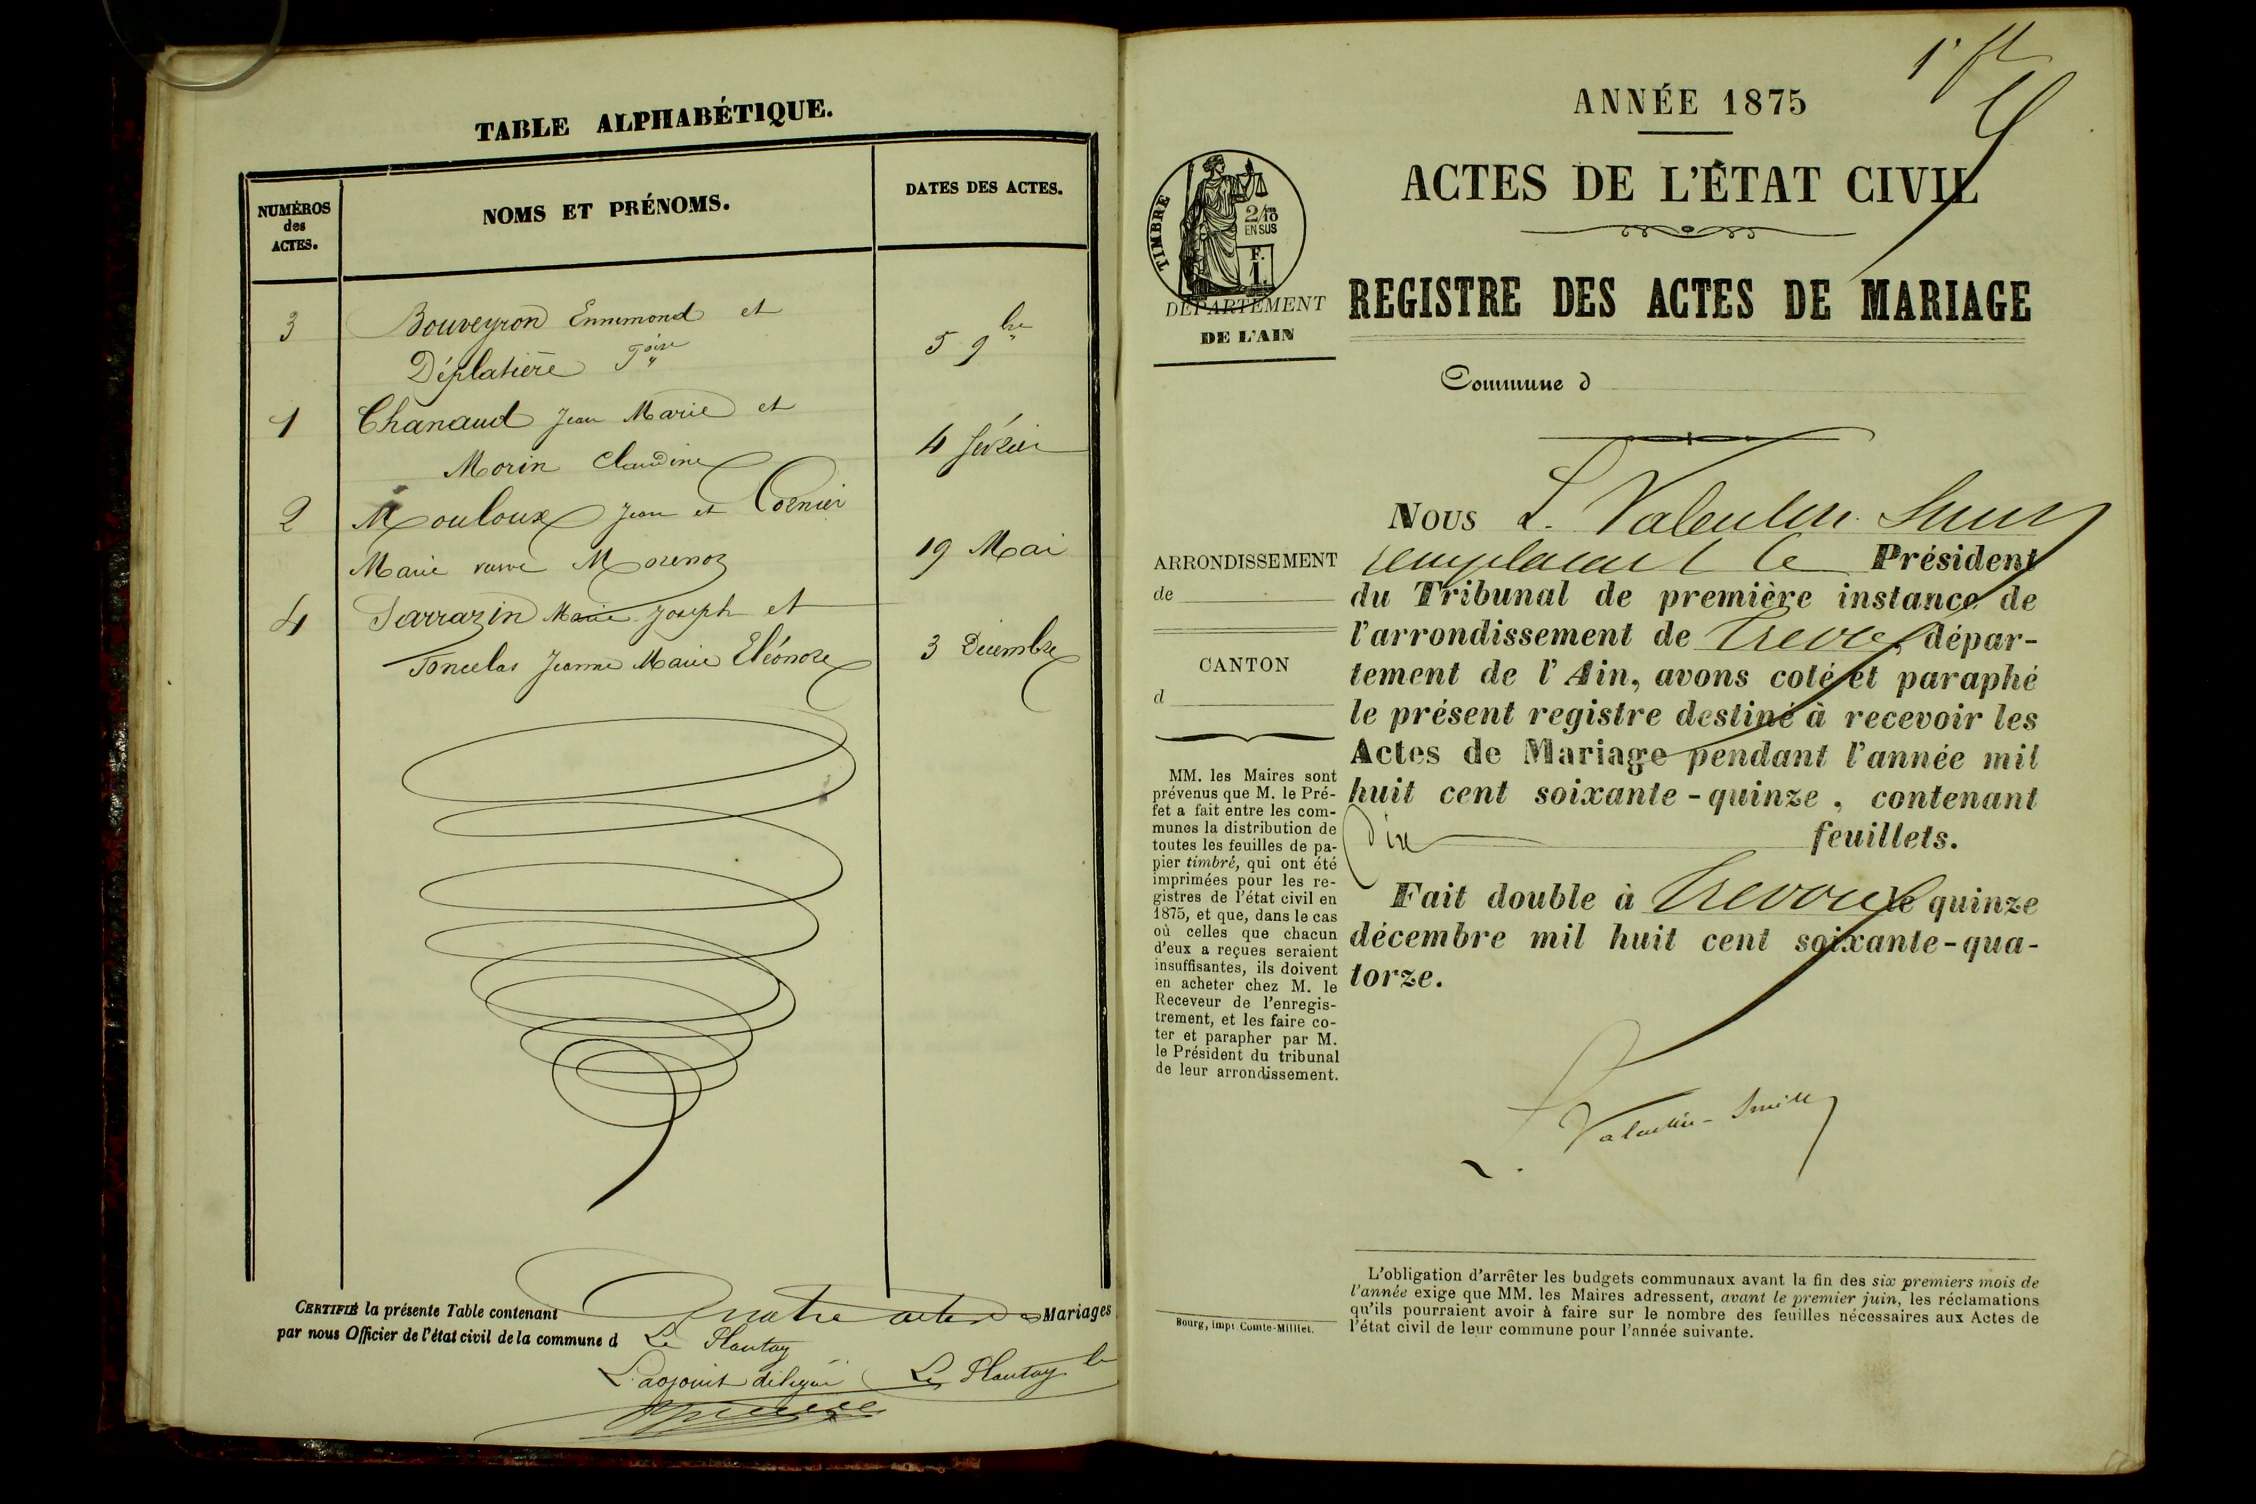 TABLE ALPHABÉTIQUE.
NUMÉROS
des
ACTES.
NOMS ET PRÉNOMS.
DATES DES ACTES.
3
Bouveyron Ennemond et
Déplatière Fçoise
5 9bre
1
Chanaud Jean Marie et
Morin Claudine
4 février
2
Mouloux Jean et Cornier
Marie veuve
19 Mai
4
Sarrazin Marie Joseph et
Poncelas Jeanne Marie Eléonore
3 Décembre
CERTIFIÉ la présente Table contenant Quatre actes de Mariages
par nous Officier de l'état civil de la commune d Le Plantay
Le Plantay le
L'adjoint délégué
1er ft
ANNÉE 1875
ACTES DE L'ÉTAT CIVIL
TIMBRE
2/10
EN SUS
F.
1.
DÉPARTEMENT
DE L'AIN
REGISTRE DES ACTES DE MARIAGE
Commune d
ARRONDISSEMENT
de
CANTON
d
MM. les Maires sont
prévenus que M. le Pré-
fet a fait entre les com-
munes la distribution de
toutes les feuilles de pa-
pier timbré, qui ont été
imprimées pour les re-
gistres de l'état civil en
1875, et que, dans le cas
où celles que chacun
d'eux a reçues seraient
insuffisantes, ils doivent
en acheter chez M. le
Receveur de l'enregis-
trement, et les faire co-
ter et parapher par M.
le Président du tribunal
de leur arrondissement.
Bourg, imp. Comte-Milliet.
NOUS L. Valentin Smith
remplacant le Président
du Tribunal de première instance de
l'arrondissement de Trevoux, dépar-
tement de l'Ain, avons coté et paraphé
le présent registre destiné à recevoir les
Actes de Mariage pendant l'année mil
huit cent soixante-quinze, contenant
Dix feuillets.
Fait double à Trevoux le quinze
décembre mil huit cent soixante-qua-
torze.
L. Valentin-Smith
L'obligation d'arrêter les budgets communaux avant la fin des six premiers mois de
l'année exige que MM. les Maires adressent, avant le premier juin, les réclamations
qu'ils pourraient avoir à faire sur le nombre des feuilles nécessaires aux Actes de
l'état civil de leur commune pour l'année suivante.